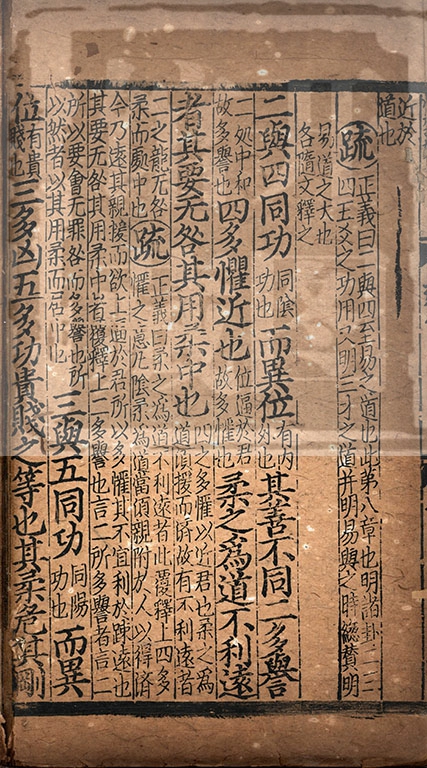 近於
道也
疏 正義曰二與四至易之道也此第八章也明諸卦二三
四五爻之功用又明三才之道并明易興之時總贊明
易道之大也
各隨文釋之
二與四同功 同陰功也 而異位 有內外也 其善不同二多譽
二處中和故多譽也 四多懼近也 位逼於君故多懼也 柔之爲道不利遠
者其要无咎其用柔中也 四之多懼以近君也柔之爲道須援而濟故有不利遠者
二之能无咎柔而處中也 疏 正義曰柔之爲道不利遠者此覆釋上四多
懼之意凡陰柔爲道當須親附於人以得濟
今乃遠其親援而欲上逼於君所以多懼其不宜利於踈遠也
其要无咎其用柔中者覆釋上二多譽也言二所多譽者言二
所以要會无罪咎而多譽也所
以然者以其用柔而居中也 三與五同功 同陽功也 而異
位 有貴賤也 三多凶五多功貴賤之等也其柔危其剛